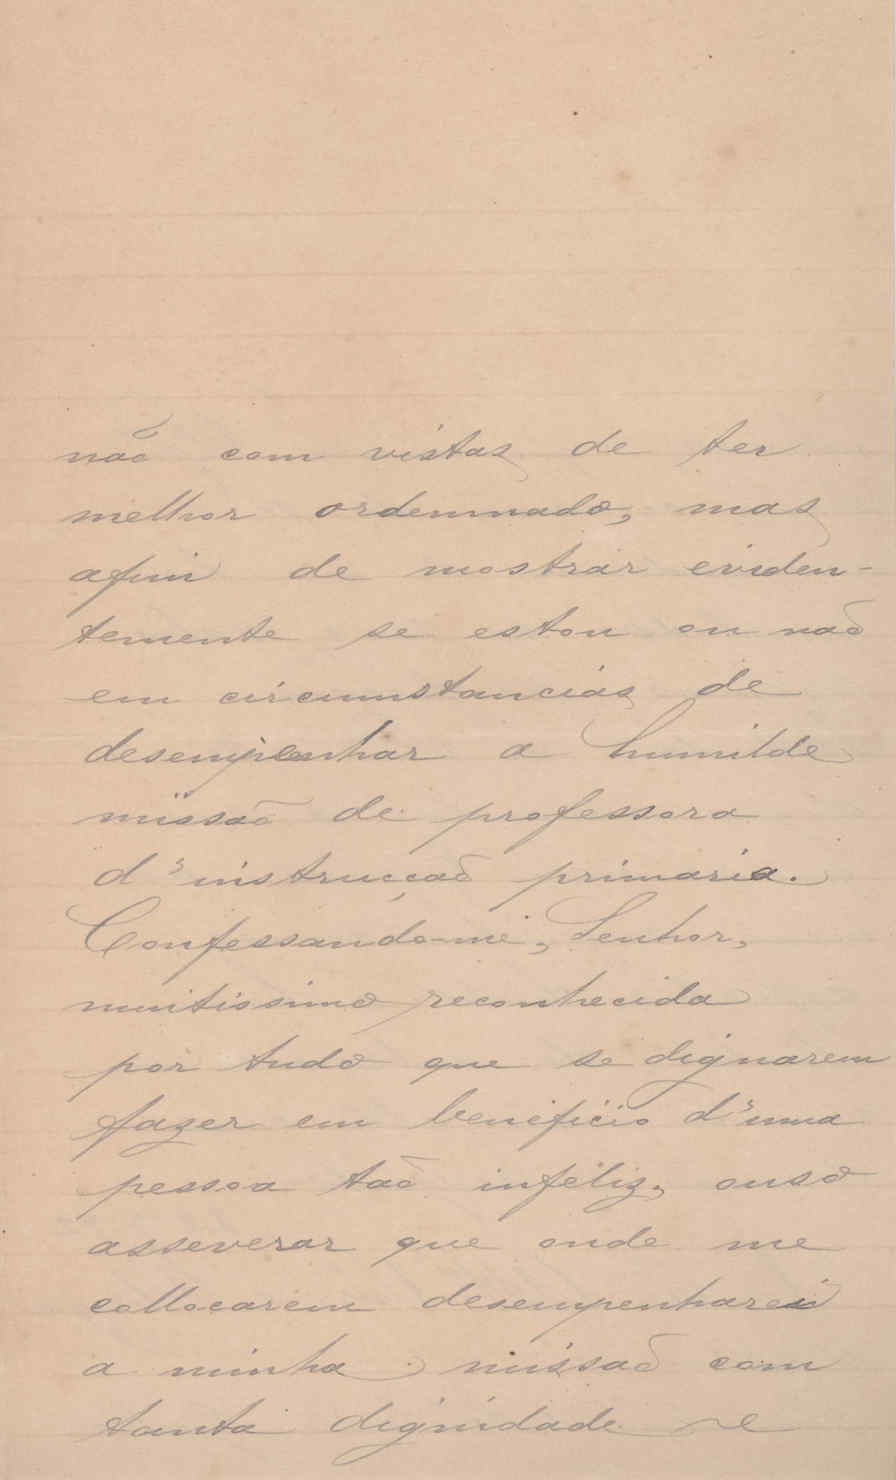 não com vistas de ter
melhor ordemnado, mas
afim de mostrar eviden-
temente se estou ou não
em circumstancias de
desempenhar a humilde
missão de professora
d'instrucção primaria.
Confessando-me, Senhor,
muitissimo reconhecida
por tudo que se dignarem
fazer em beneficio d'uma
pessoa tão infeliz, ouso
asseverar que onde me
collocarem desempenharei
a minha missão com
tanta dignidade e